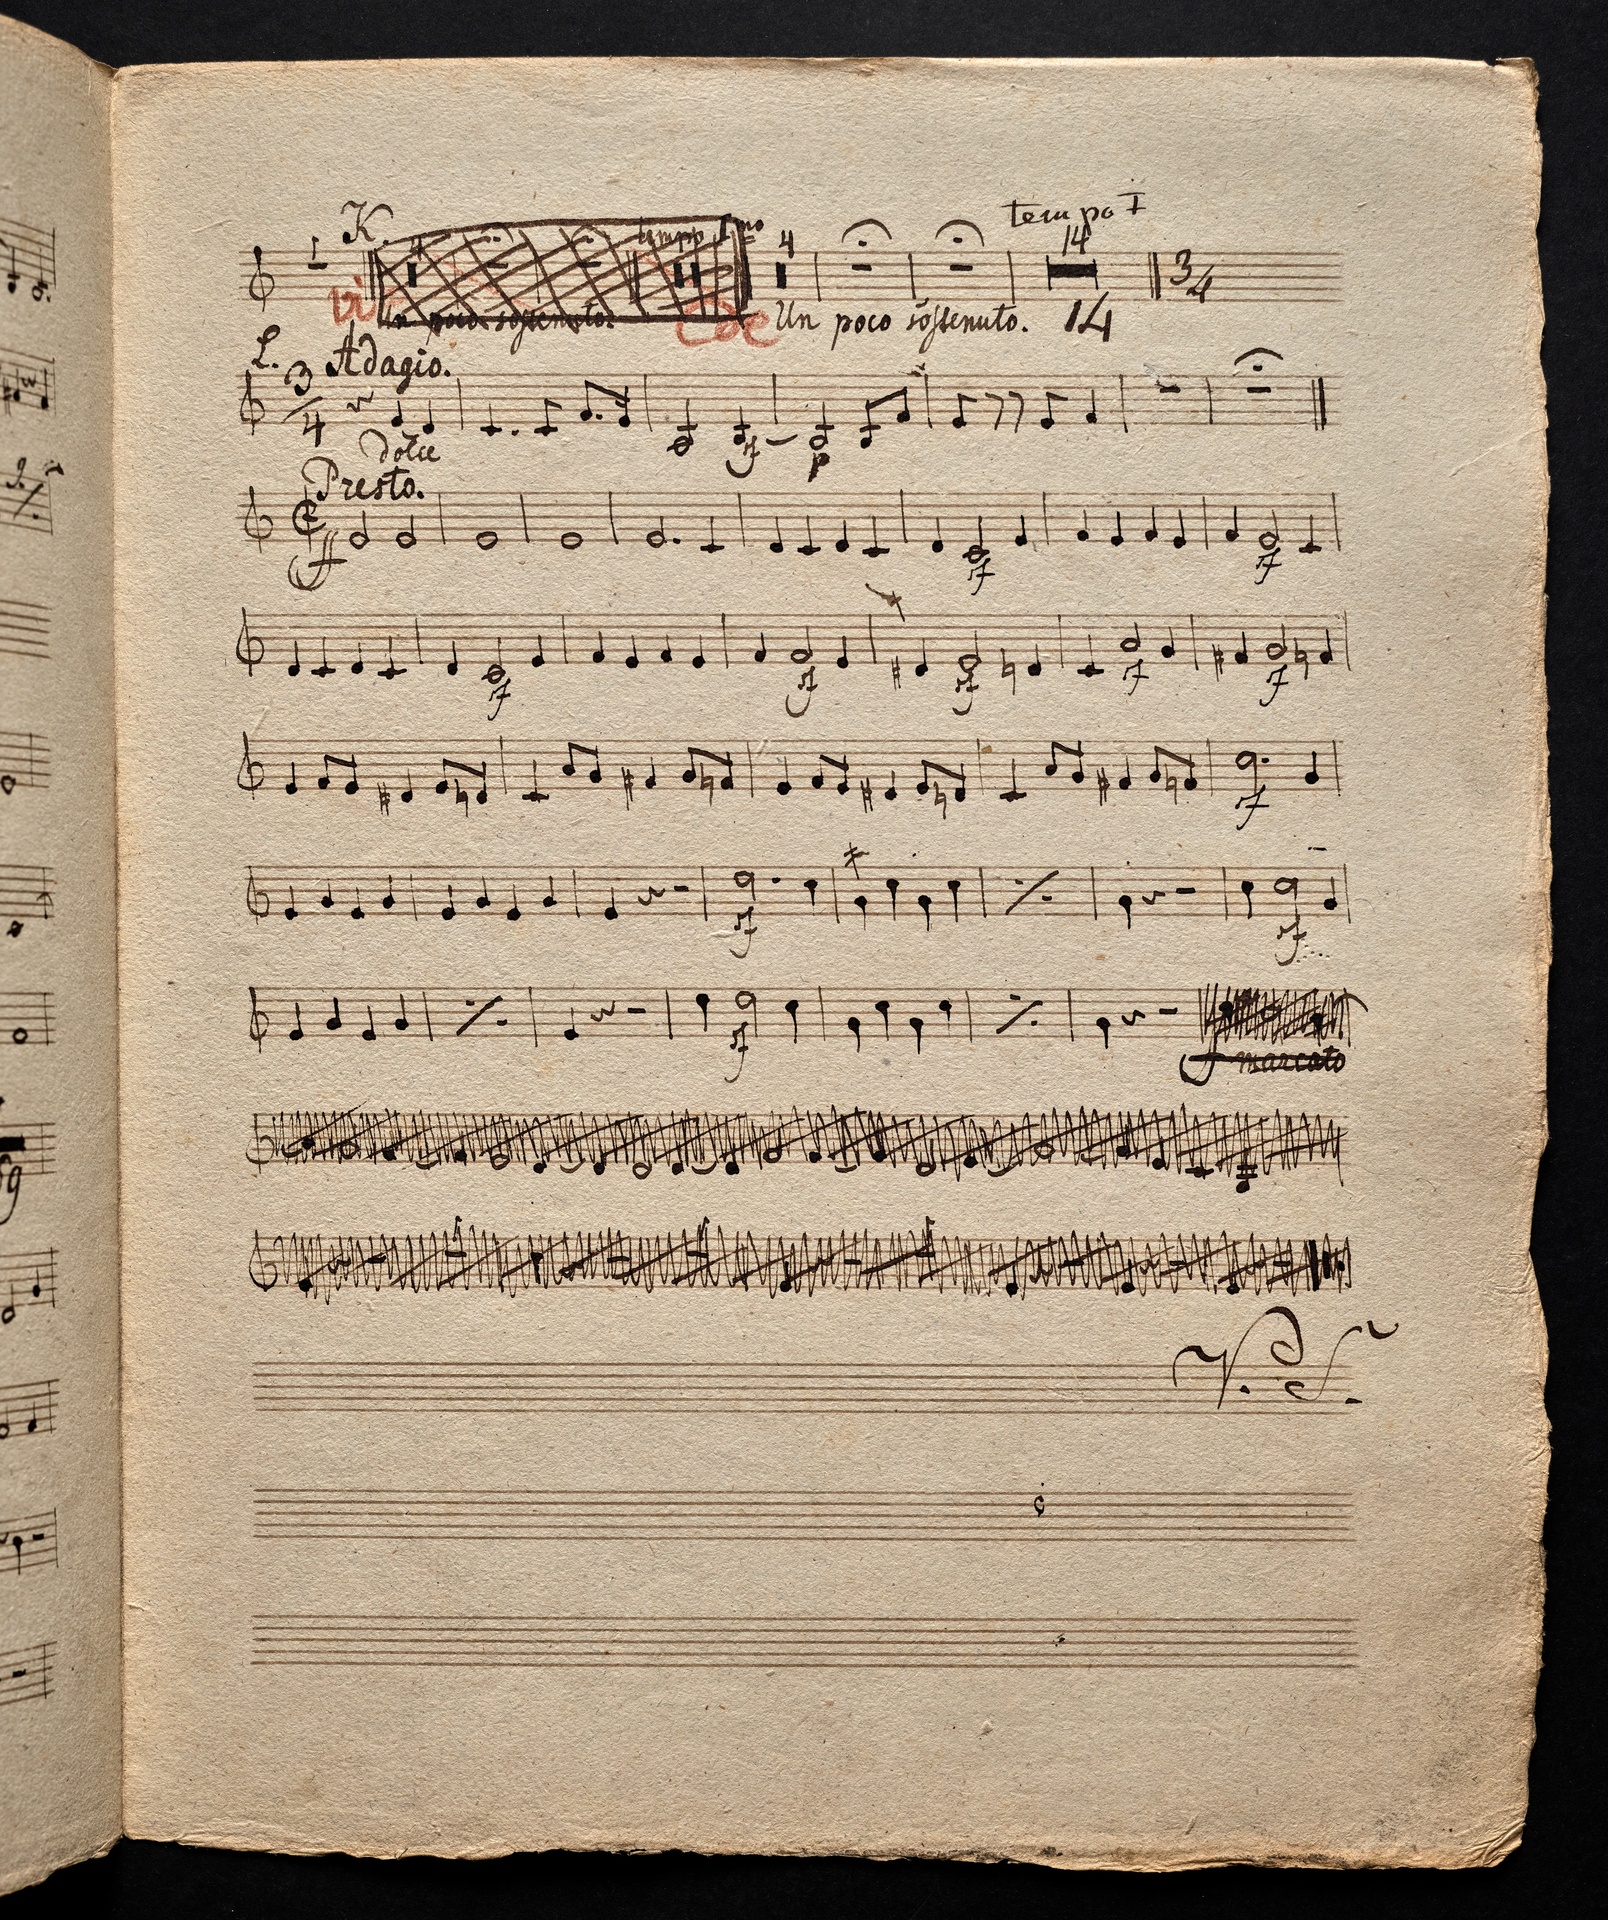 1 K. 4 tempo Imo 4 tempo I 14
3/4
vi Un poco sostenuto. Coe Un poco sostenuto. 14
L. Adagio.
3/4
dolce sf p
Presto.
ff sf sf
sf sf sf sf sf
sf
sf sf
sf
f marcato
V. S.